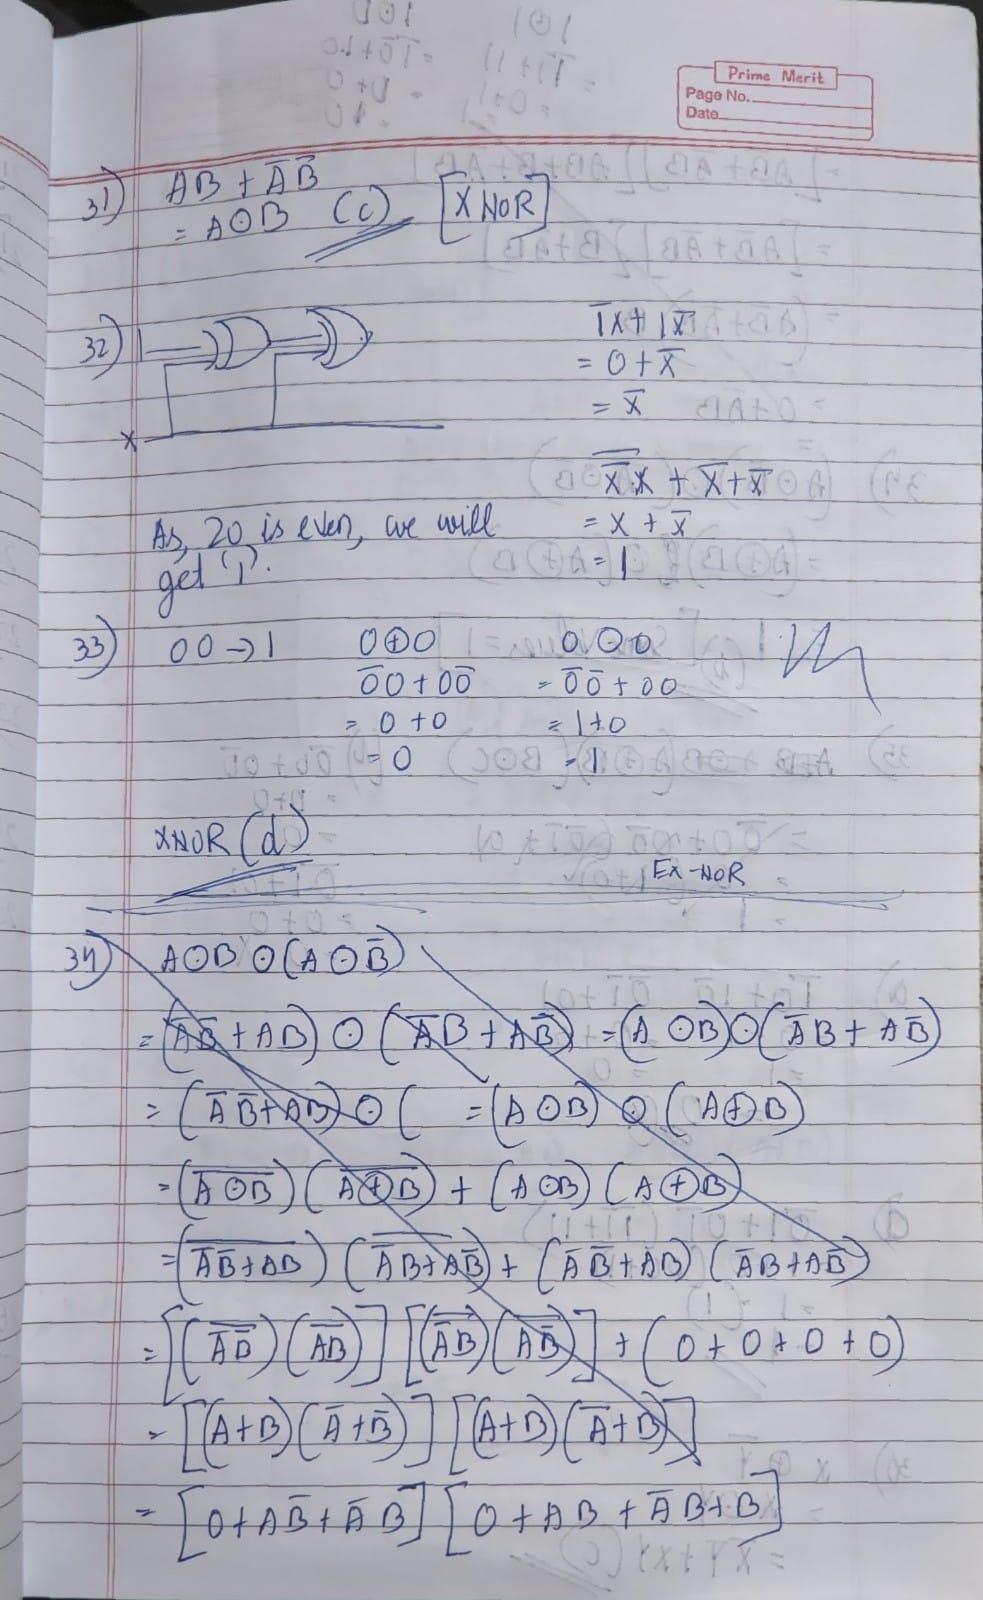 Prime Merit
Page No.
Date
31) AB + A̅B̅
= A⊙B (c) [XNOR]
32) 1
X
1̅X + 1X̅
= 0 + X̅
= X̅
X̿X + X̅ + X̅
= X + X̅
= 1
As, 20 is even, we will
get '1'.
33) 00 → 1 0⊕0 0⊙0
0̅0 + 00̅ = 0̅0̅ + 00
= 0 + 0 = 1 + 0
= 0 = 1
XNOR (d)
Ex-NOR
34) A⊙B ⊙ (A⊙B̅)
= (A̅B̅ + AB) ⊙ (A̅B + AB̅) = (A⊙B)⊙(A̅B + AB̅)
= (A̅B̅ + AB) ⊙ ( = (A⊙B) ⊙ (A⊕B)
= (A̅⊙̅B̅) (A̅⊕̅B̅) + (A⊙B) (A⊕B)
= (A̅B̅+AB)‾ (A̅B+AB̅)‾ + (A̅B̅+AB) (A̅B+AB̅)
= [(A̅B̅)‾ (AB)‾] [(A̅B)‾ (AB̅)‾] + (0 + 0 + 0 + 0)
= [(A+B) (A̅+B̅)] [(A+B) (A̅+B)]
= [0 + AB̅ + A̅B] [0 + AB + A̅B + B]